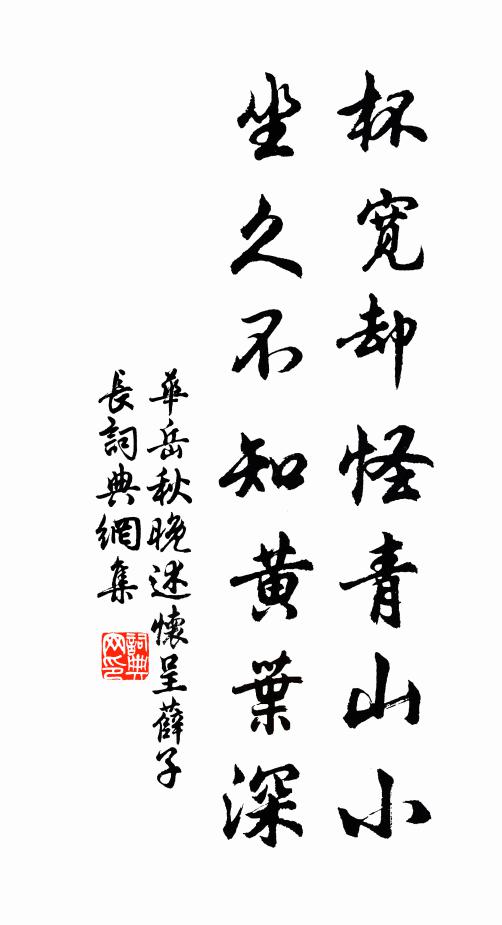 杯寬却怪青山小
坐久不知黄葉深
華岳秋晚述懷呈薛子
長詞典網集
詞典
网印